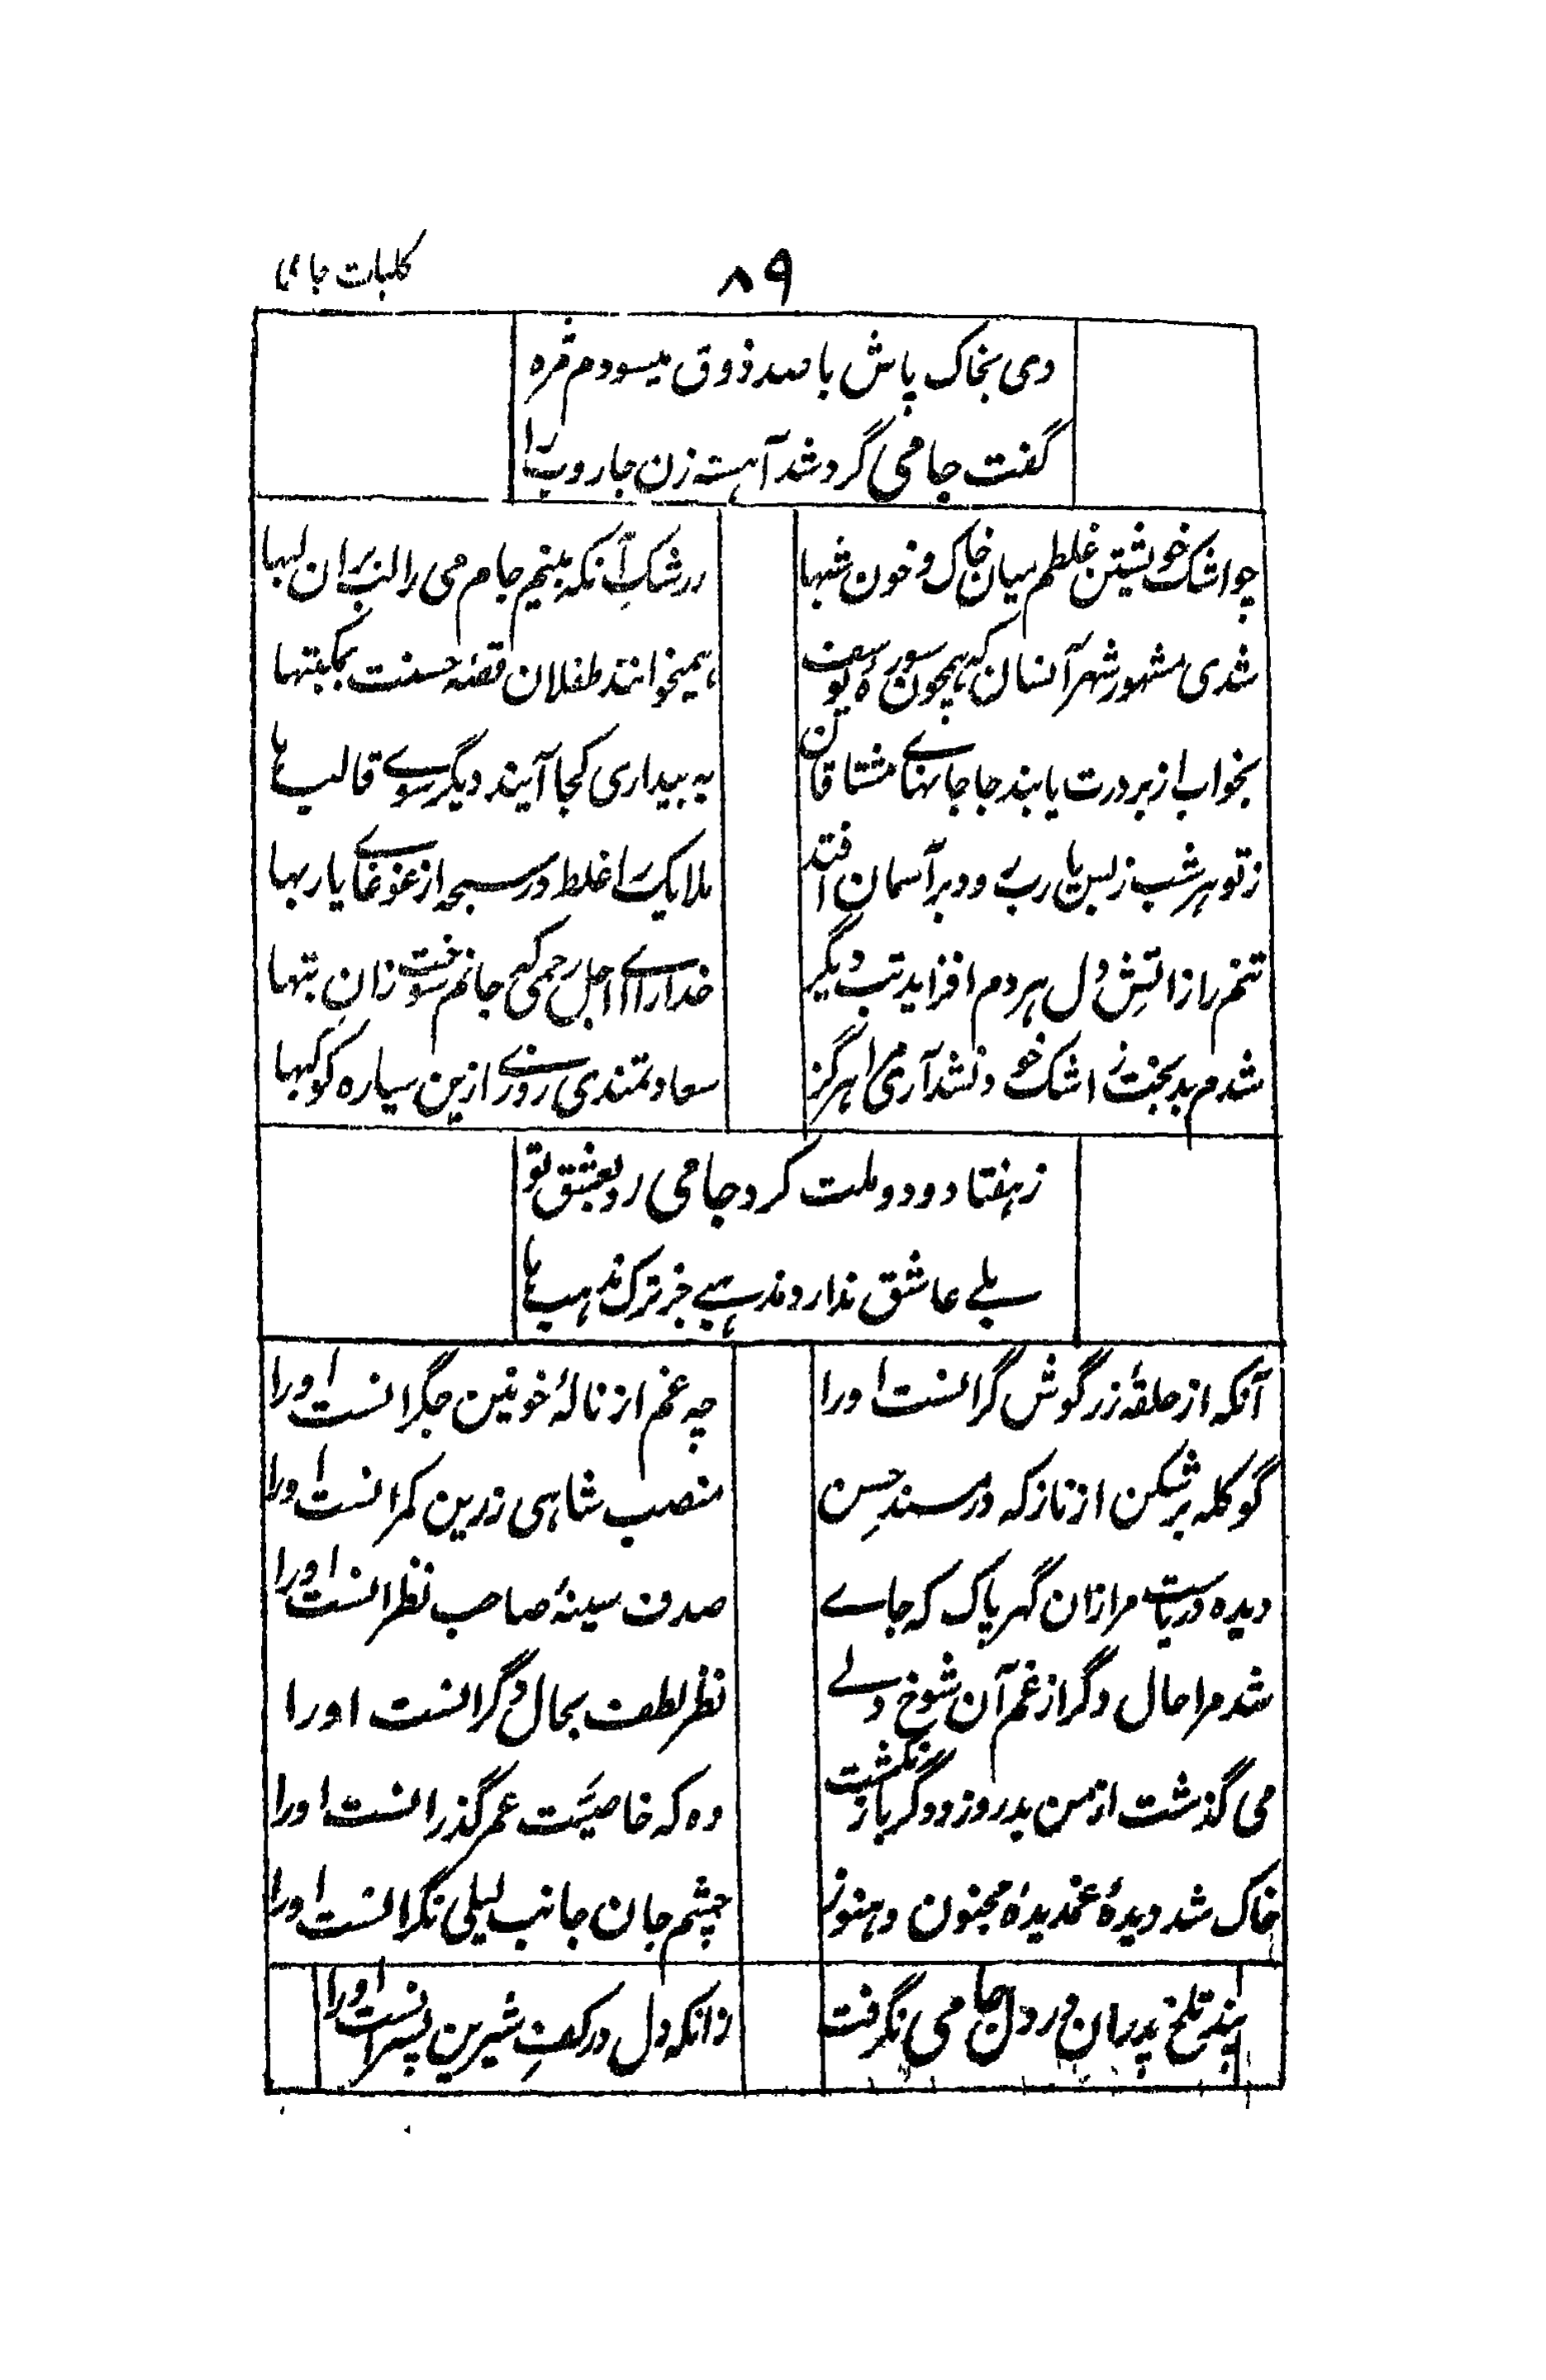 ۸۹
کلیات جامی
دی بخاک پاش با صد ذوق میسودم مژه
گفت جامی گرد شد آهسته زن جاروب را
چو اشک خویشتن غلطم میان خاک و خون شبها
ز رشک آنکه بینم جام می را لب بران لبها
شدی مشهور شهر آنسان که همچون سورهٔ یوسف
همیخوانند طفلان قصهٔ حسنت بمکتبها
بخواب از بر درت یابند جا جانهاے مشتاقان
به بیداری کجا آیند دیگر سوے قالب ها
ز تو هر شب ز بس یا رب رود بر آسمان افتد
ملایک را غلط در سبحه از غوغاے یاربها
تنم را ز آتش دل هر دم افزاید تب دیگر
خدا را اے اجل رحمی که جانم سوخت زان تبها
شدم بدبخت ز اشک خود نشد آری مرا هرگز
سعادتمندی روزے ازین سیاره کوکبها
ز هفتاد و دو ملت کرد جامی رو بعشق تو
بلے عاشق ندارد مذهبے جز ترک مذهب ها
آنکه از حلقهٔ زر گوش گرانست او را
چه غم از نالهٔ خونین جگرانست او را
گو کله برشکن از ناز که در مسند حسن
منصب شاهی زرین کمرانست او را
دیده دریاست مرا زان گهر پاک که جاے
صدف سینهٔ صاحب نظرانست او را
شد مرا حال دگر از غم آن شوخ ولے
نظر لطف بحال دگرانست او را
می گذشت از من بد روز و دگر باز نگشت
وه که خاصیت عمر گذرانست او را
خاک شد دیدهٔ غمدیدهٔ مجنون و هنوز
چشم جان جانب لیلی نگرانست او را
پند تلخ پدران در دل جامی نگرفت
زانکه دل در کف شیرین پسرانست او را